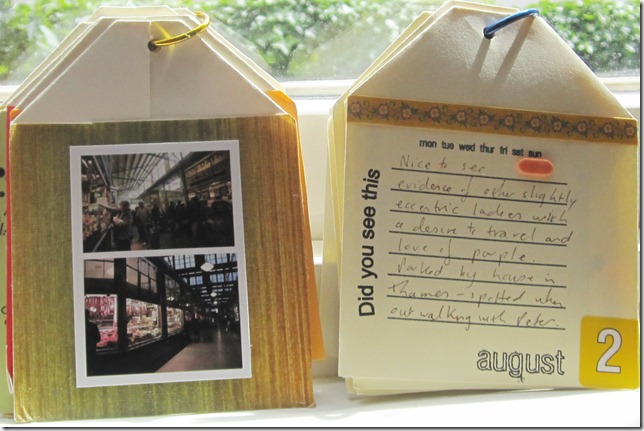 mon tue wed thur fri sat sun
Did you see this
Nice to see
evidence of other slightly
eccentric ladies with
a desire to travel and
love of purple.
Parked by house in
Thames - spotted when
out walking with Peter.
august
2